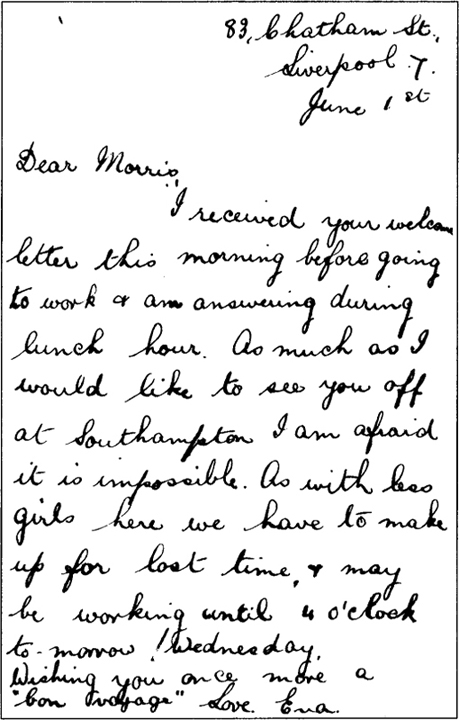 83, Chatham St.,
Liverpool 7.
June 1st
Dear Morris,
I received your welcome
letter this morning before going
to work & am answering during
lunch hour. As much as I
would like to see you off
at Southampton I am afraid
it is impossible. As with less
girls here we have to make
up for lost time, & may
be working until 4 o'clock
to-morrow ! Wednesday.
Wishing you once more a
"bon voyage" Love. Eva.